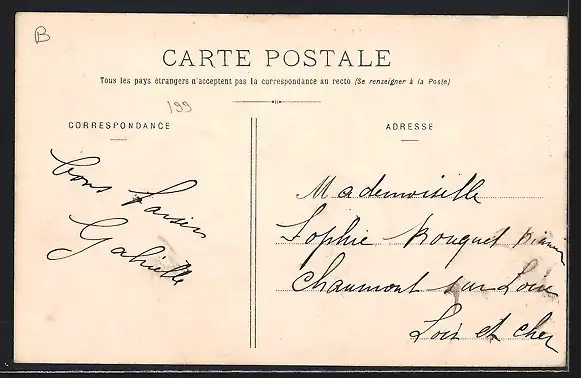 B
CARTE POSTALE
Tous les pays étrangers n'acceptent pas la correspondance au recto (Se renseigner à la Poste)
199
CORRESPONDANCE
ADRESSE
bons
Gabrielle
Mademoiselle
Sophie Rouquet
Chaumont sur Loire
Loir et cher